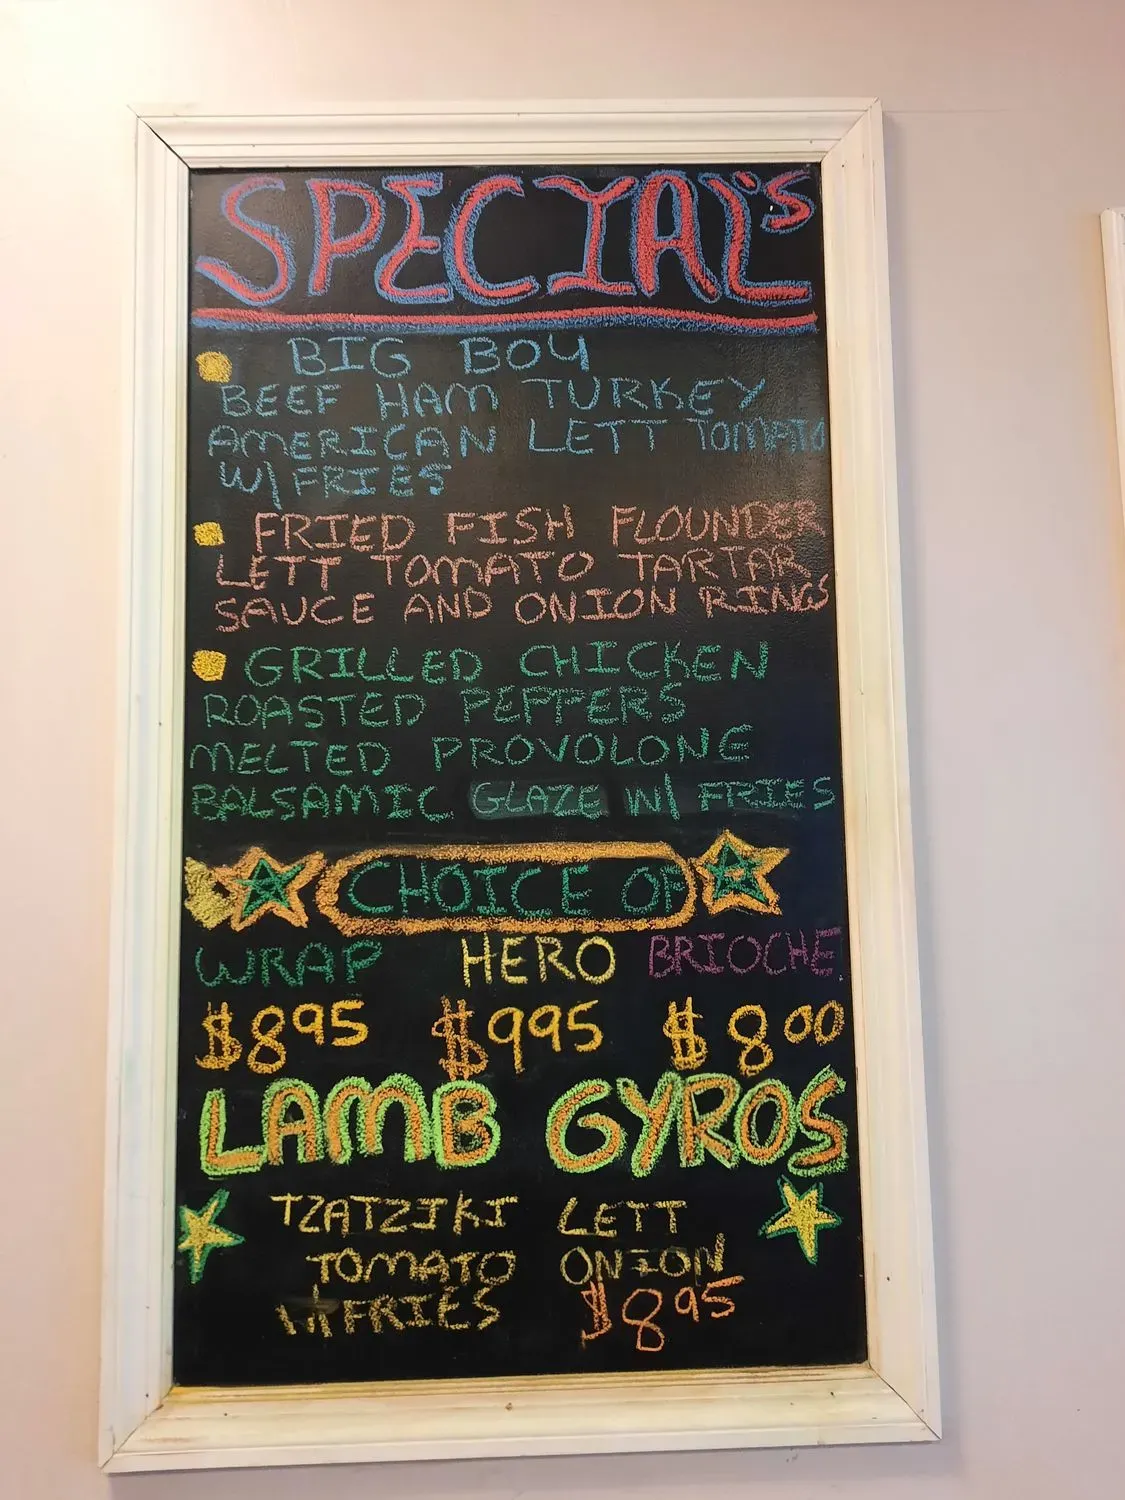 SPECIAL'S
BIG BOY
BEEF HAM TURKEY
AMERICAN LETT TOMATO
W/ FRIES
FRIED FISH FLOUNDER
LETT TOMATO TARTAR
SAUCE AND ONION RINGS
GRILLED CHICKEN
ROASTED PEPPERS
MELTED PROVOLONE
BALSAMIC GLAZE W/ FRIES
CHOICE OF
WRAP HERO BRIOCHE
$8.95 $9.95 $8.00
LAMB GYROS
TZATZIKI LETT
TOMATO ONION
W/ FRIES $8.95